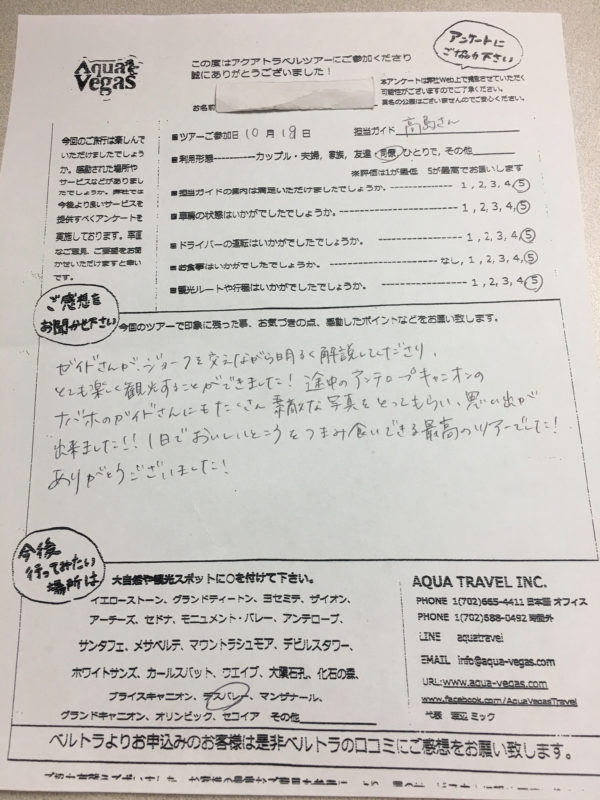 Aqua
Vegas
この度はアクアトラベルツアーにご参加くださり
誠にありがとうございました！
アンケートに
ご協力下さい
本アンケートは弊社Web上で掲載させていただく
可能性がございますのでご了承ください。
実名の公表はございませんのでご安心ください。
お名前
今回のご旅行は楽しんで
いただけましたでしょう
か。感動された場所や
サービスなどがありまし
たでしょうか。弊社では
今後より良いサービスを
提供すべくアンケートを
実施しております。率直
なご意見、ご要望をお聞
かせいただけますと幸い
です。
■ツアーご参加日 10 月 19 日 担当ガイド 高島さん
■利用形態-----------カップル・夫婦, 家族, 友達, 同僚, ひとりで, その他
※評価は1が最低 5が最高でお願いします
■担当ガイドの案内は満足いただけましたでしょうか。--------------- 1, 2, 3, 4, 5
■車輛の状態はいかがでしたでしょうか。-------------------- 1, 2, 3, 4, 5
■ドライバーの運転はいかがでしたでしょうか。 ------------------- 1, 2, 3, 4, 5
■お食事はいかがでしたでしょうか。---------------------- なし, 1, 2, 3, 4, 5
■観光ルートや行程はいかがでしたでしょうか。------------------ 1, 2, 3, 4, 5
ご感想を
お聞かせ下さい
今回のツアーで印象に残った事、お気づきの点、感動したポイントなどをお願い致します。
ガイドさんが、ジョークを交えながら明るく解説してくださり、
とても楽しく観光することができました！途中のアンテロープキャニオンの
ナバホのガイドさんにもたくさん素敵な写真をとってもらい、思い出が
出来ました!! 1日でおいしいところをつまみ食いできる最高のツアーでした！
ありがとうございました！
今後
行ってみたい
場所は
大自然や観光スポットに○を付けて下さい。
イエローストーン、グランドティートン、ヨセミテ、ザイオン、
アーチーズ、セドナ、モニュメント・バレー、アンテロープ、
サンタフェ、メサベルデ、マウントラシュモア、デビルスタワー、
ホワイトサンズ、カールスバット、ウエイブ、大隕石孔、化石の森、
ブライスキャニオン、デスバレー、マンザナール、
グランドキャニオン、オリンピック、セコイア その他
AQUA TRAVEL INC.
PHONE 1(702)665-4411 日本語 オフィス
PHONE 1(702)588-0492 時間外
LINE aquatravel
EMAIL info@aqua-vegas.com
URL:www.aqua-vegas.com
www.facebook.com/AquaVegasTravel
代表 渡辺 ミック
ベルトラよりお申込みのお客様は是非ベルトラの口コミにご感想をお願い致します。